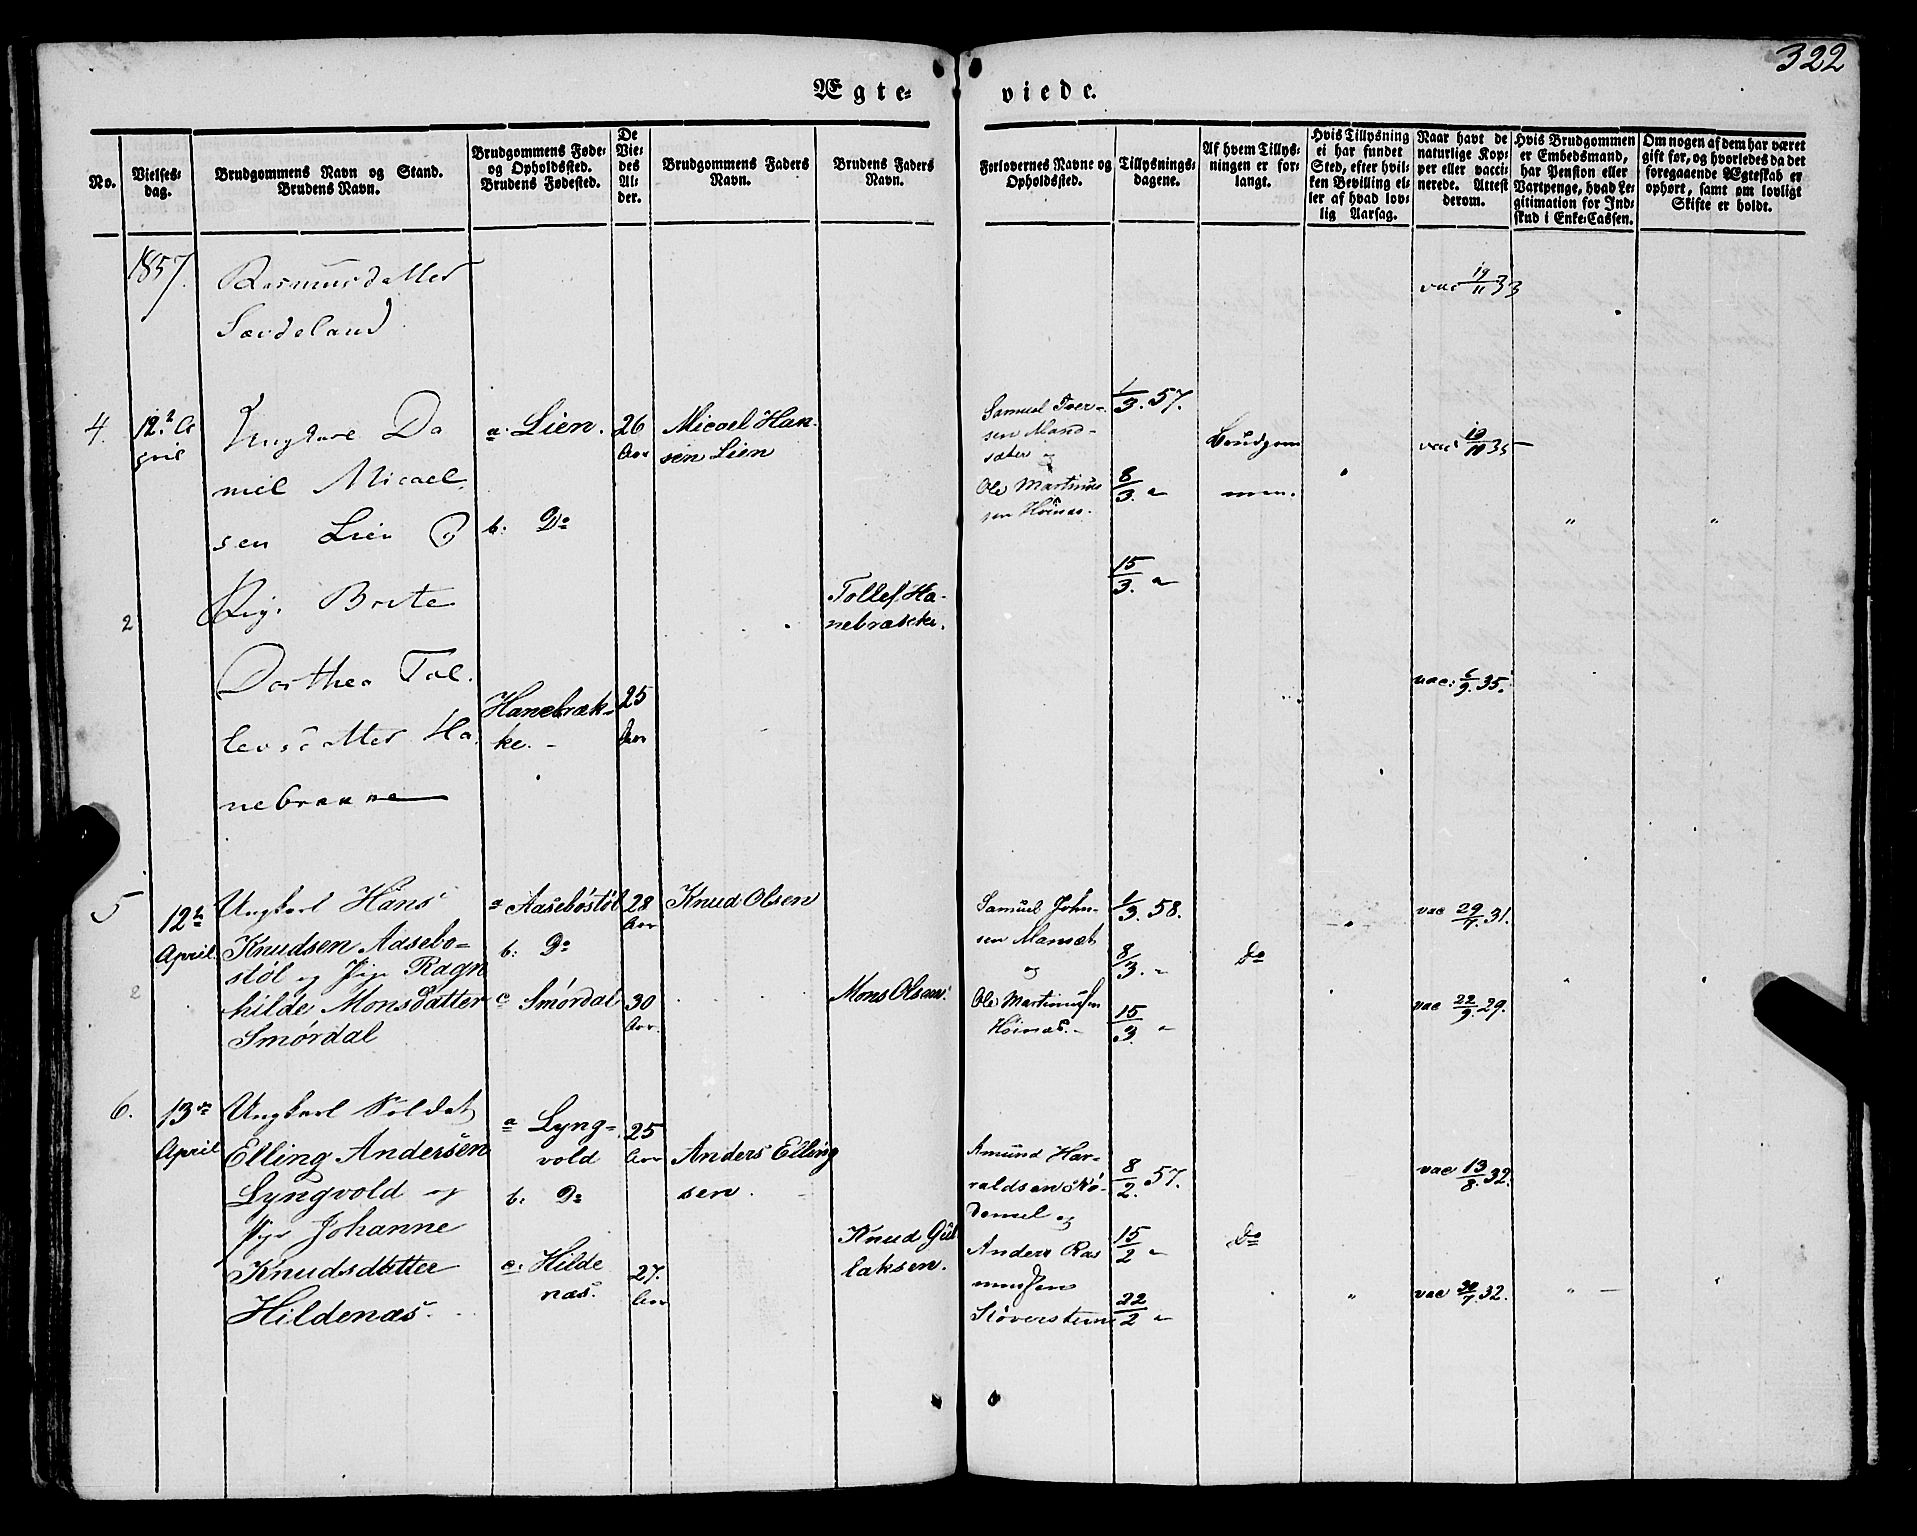 322
Ægte-
viede.
No.
Vielses-
dag.
Brudgommens Navn og Stand.
Brudens Navn.
Brudgommens Føde-
og Opholdssted.
Brudens Fødested.
De
Vie-
des
Al-
der.
Brudgommens Faders
Navn.
Brudens Faders
Navn.
Forlovernes Navne og
Opholdssted.
Tillysnings-
dagene.
Af hvem Tillys-
ningen er for-
langt.
Hvis Tillysning
ei har fundet
Sted, efter hvil-
ken Bevilling el-
ler af hvad lov-
lig Aarsag.
Naar havt de
naturlige Kop-
per eller vacci-
nerede. Attest
derom.
Hvis Brudgommen
er Embedsmand,
har Pension eller
Vartpenge, hvad Le-
gitimation for Ind-
skud i Enke-Cassen.
Om nogen af dem har været
gift før, og hvorledes da det
foregaaende Ægteskab er
ophørt, samt om lovligt
Skifte er holdt.
1857.
Rasmusdatter
Sævdeland
vac 19/11 33
4.
12te A
pril
Ungkarl Da
niel Micael
sen Lien &
Pige Berte
Dorthea Tol
levsdatter Ha
nebrække
a. Lien.
b. Do
Hanebræk-
ke. -
26
Aar
25
Aar
Micael Han-
sen Lien
2
Tollef Ha-
nebrække.
Samuel Iver-
sen Mand-
sæter og
Ole Martinus
sen Høinæs.
1/3. 57.
8/3. "
15/3. "
Brudgom
men.
vac 19/11 35
vac: 6/9. 35.
5
12te
April
Ungkarl Hans
Knudsen Aasebø-
støl og Pige Ragn
hilde Monsdatter
Smørdal
a Aasebøstøl
b: Do
c Smørdal
28
Aar
30
Aar.
Knud Olsen
2
Mons Olsen.
Samuel John-
sen Mansæt
og
Ole Martinussen
Høinæs. -
1/3. 58.
8/3. "
15/3. "
Do
vac 29/7. 31.
vac 22/9. 29.
6.
13de
April
Ungkarl Soldat
Elling Andersen
Lyngvold og
Pige Johanne
Knudsdatter
Hildenæs.
a Lyng-
vold
b: Do
c: Hilde
næs.
25
Aar
27.
Aar
Anders Elling
sen.
Knud Gul
laksen.
Amund Har-
raldsen
og
Anders Ras
mussen
8/2. 57.
15/2 "
22/2 "
Do
vac 13/8. 32.
vac 30/7. 32.